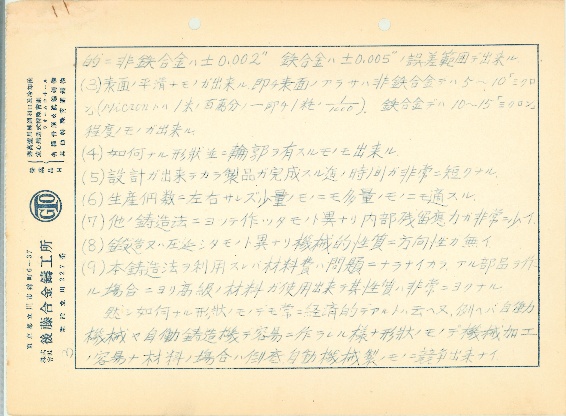 11
的ニ非鉄合金ハ±0.002″ 鉄合金ハ±0.005″ノ誤差範囲デ出来ル.
(3)表面ノ平滑ナモノガ出来ル. 即チ表面ノアラサハ非鉄合金デハ5〜10ミクロ
ン, (Micronハ1米ノ百萬分ノ一即チ1粍ノ1/1000). 鉄合金デハ10〜15ミクロン
程度ノモノガ出来ル.
(4)如何ナル形状並ニ輪郭ヲ有スルモノモ出来ル.
(5)設計ガ出来テカラ製品ガ完成スル迄ノ時間ガ非常ニ短クナル.
(6)生産個数ニ左右サレズ少量ノモノニモ多量ノモノニモ適スル.
(7)他ノ鋳造法ニヨッテ作ッタモノト異ナリ内部残留應力ガ非常ニ少イ.
(8)鍛造又ハ圧延シタモノト異リ機械的性質ニ方向性ガ無イ
(9)本鋳造法ヲ利用スレバ材料費ハ問題ニナラナイカラ, アル部品ヲ作
ル場合ニヨリ高級ノ材料ガ使用出来テ其性質ハ非常ニヨクナル.
然シ如何ナル形状ノモノデモ常ニ経済的デアルトハ云ヘヌ, 例ヘバ自働
機械ヤ自働鋳造機デ容易ニ作ラレル様ナ形状ノモノデ機械加工
ノ容易ナ材料ノ場合ハ自動機械製ノモノニ競争出来ナイ
GTO
株式会社 後藤合金鑄工所
東京都立川市錦町6-37
電話立川227番